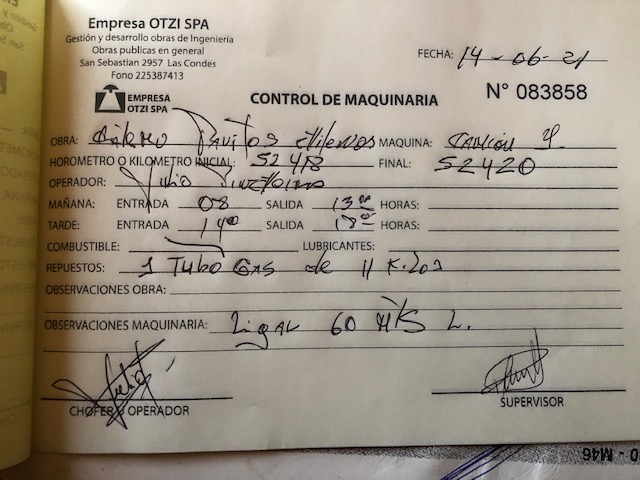 Empresa OTZI SPA
Gestión y desarrollo obras de Ingeniería
Obras publicas en general
San Sebastian 2957 Las Condes
Fono 225387413
FECHA: 14-06-21
EMPRESA
OTZI SPA
CONTROL DE MAQUINARIA
N° 083858
OBRA: MAQUINA:
HOROMETRO O KILOMETRO INICIAL: 52418 FINAL: 52420
OPERADOR: Julio
MAÑANA: ENTRADA 08 SALIDA 13°° HORAS:
TARDE: ENTRADA 14°° SALIDA 18°° HORAS:
COMBUSTIBLE: LUBRICANTES:
REPUESTOS: 1 Tubo Gas de 11 Kilos
OBSERVACIONES OBRA:
OBSERVACIONES MAQUINARIA:
CHOFER / OPERADOR
SUPERVISOR
0 - M46